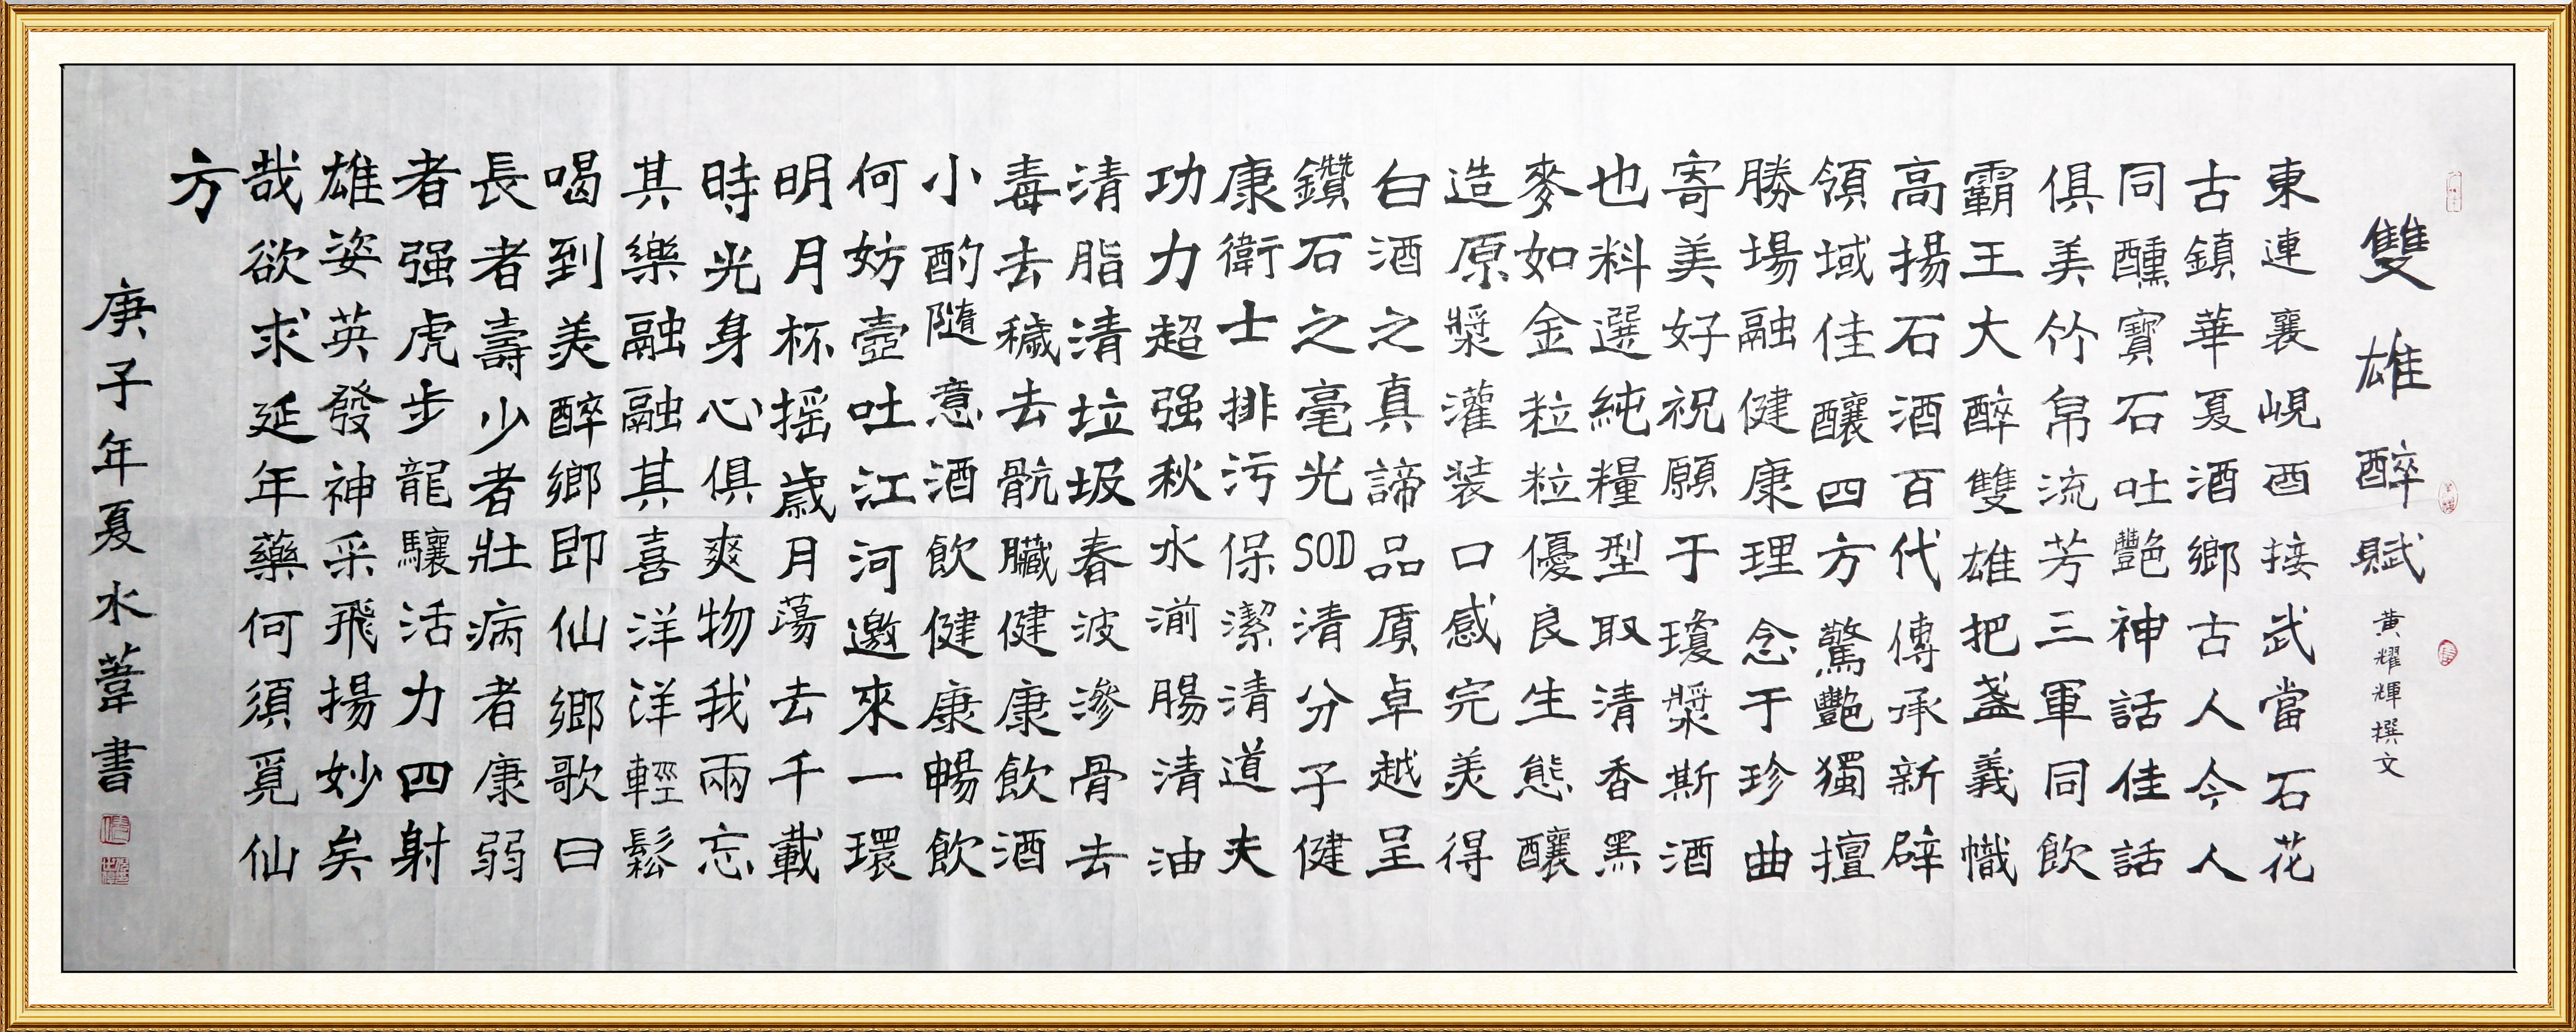 雙雄醉賦
黄耀輝撰文
東連襄峴西接武當石花
古鎮華夏酒鄉古人今人
同醺寶石吐艷神話佳話
俱美竹帛流芳三軍同飲
霸王大醉雙雄把盞義幟
高揚石酒百代傳承新辟
領域佳釀四方驚艷獨擅
勝場融健康理念于珍曲
寄美好祝願于瓊漿斯酒
也料選純糧型取清香黑
麥如金粒粒優良生態釀
造原漿灌装口感完美得
白酒之真諦品質卓越呈
鑽石之毫光SOD清分子健
康衛士排污保潔清道夫
功力超强秋水湔腸清油
清脂清垃圾春波滲骨去
毒去穢去骯臟健康飲酒
小酌隨意酒飲健康暢飲
何妨壺吐江河邀來一環
明月杯摇歲月蕩去千載
時光身心俱爽物我兩忘
其樂融融其喜洋洋輕鬆
喝到美醉鄉即仙鄉歌曰
長者壽少者壯病者康弱
者强虎步龍驤活力四射
雄姿英發神采飛揚妙矣
哉欲求延年藥何須覓仙
方
庚子年夏水葦書